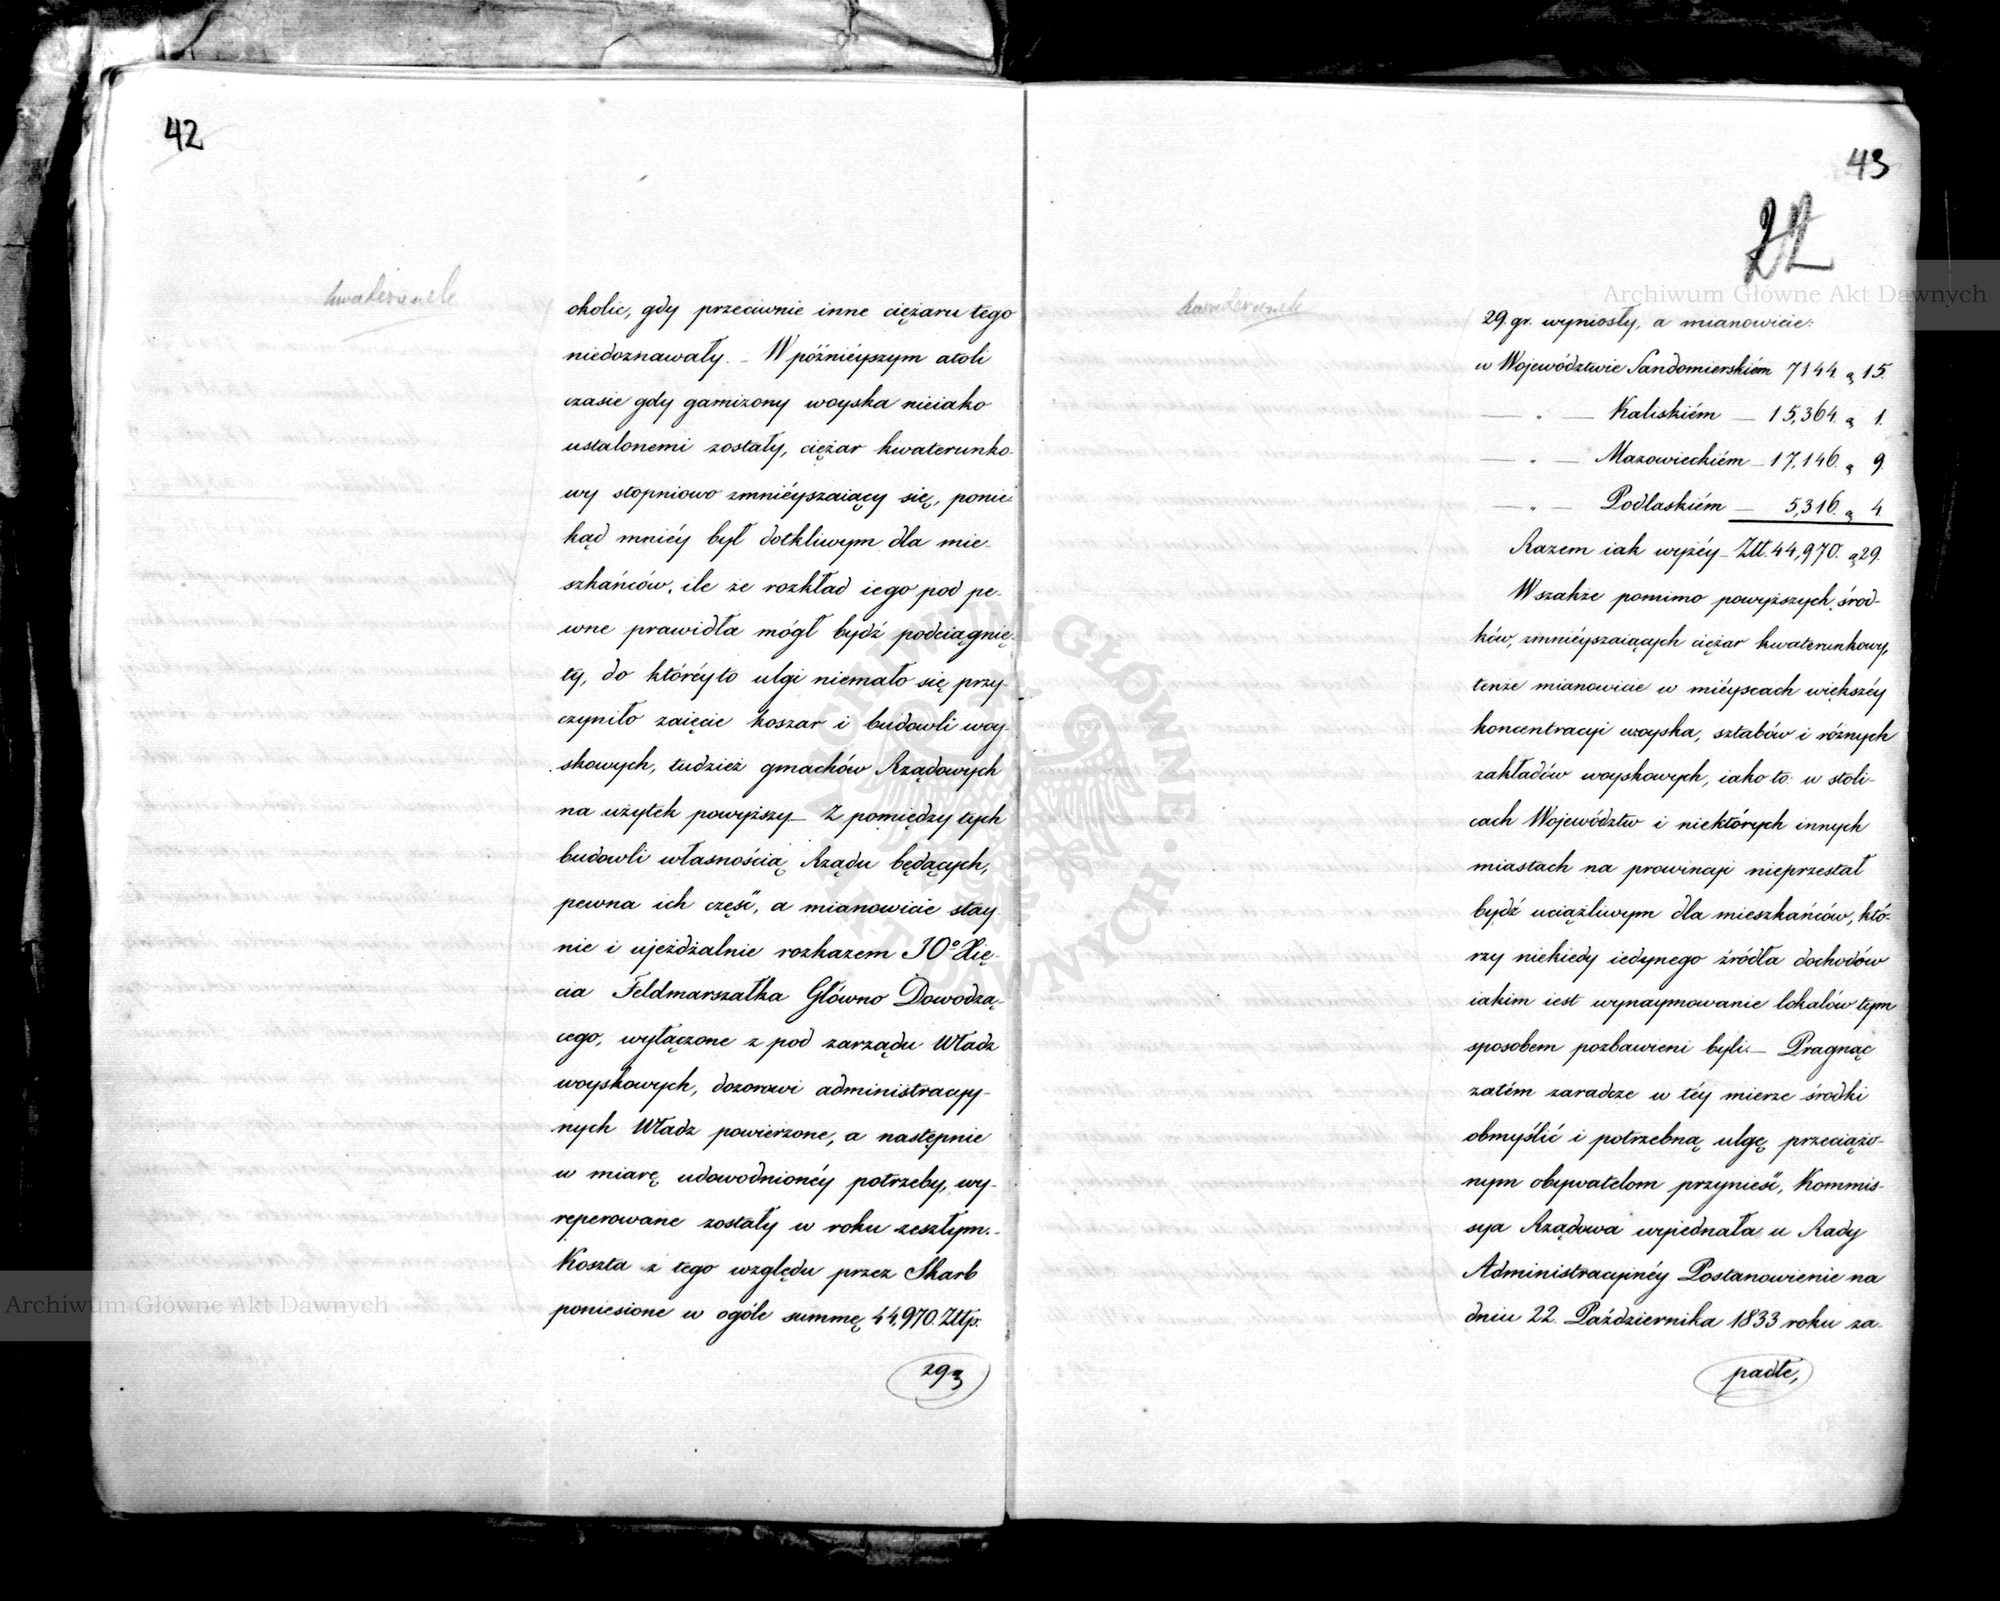 42
kwaterunek
okolic, gdy przeciwnie inne ciężaru tego
niedoznawały. – W późniéyszym atoli
czasie gdy garnizony woyska nieiako
ustalonemi zostały, ciężar kwaterunko-
wy stopniowo zmniéyszaiący się, ponie-
kąd mniéy był dotkliwym dla mie-
szkańców, ile że rozkład iego pod pe-
wne prawidła mógł bydź podciągnię-
ty, do któréyto ulgi niemało się przy-
czyniło zaięcie koszar i budowli woy-
skowych, tudzież gmachów Rządowych
na użytek powyższy – Z pomiędzy tych
budowli własnością Rządu będących,
pewna ich część, a mianowicie stay-
nie i ujeżdżalnie rozkazem JOº Xię-
cia Feldmarszałka Główno Dowodzą-
cego, wyłączone z pod zarządu Władz
woyskowych, dozorowi administracyy-
nych Władz powierzone, a następnie
w miarę udowodnionéy potrzeby, wy-
reperowane zostały w roku zeszłym. –
Koszta z tego względu przez Skarb
poniesione w ogóle summę 44,970. Złtp.
29 g
43
22
kwaterunek
29. gr. wyniosły, a mianowicie:
w Województwie Sandomierskiém 7144. g 15.
— " — Kaliskiém — 15,364. g 1.
— " — Mazowieckiém – 17,146. g 9.
— " — Podlaskiém — 5,316. g 4.
Razem iak wyżéy – Złt. 44,970. g 29.
Wszakże pomimo powyższych środ-
ków, zmniéyszaiących ciężar kwaterunkowy,
tenże mianowicie w miéyscach większéy
koncentracyi woyska, sztabów i różnych
zakładów woyskowych, iako to: w stoli-
cach Województw i niektórych innych
miastach na prowincyi nieprzestał
bydź uciążliwym dla mieszkańców, któ-
rzy niekiedy iedynego źródła dochodów
iakim iest wynaymowanie lokalów tym
sposobem pozbawieni byli. – Pragnąc
zatém zaradcze w téy mierze środki
obmyślić i potrzebną ulgę przeciążo-
nym obywatelom przynieść, Kommis-
sya Rządowa wyjednała u Rady
Administracyinéy Postanowienie na
dniu 22. Października 1833 roku za-
padłe,
Archiwum Główne Akt Dawnych
Archiwum Główne Akt Dawnych
ARCHIWUM GŁÓWNE AKT DAWNYCH